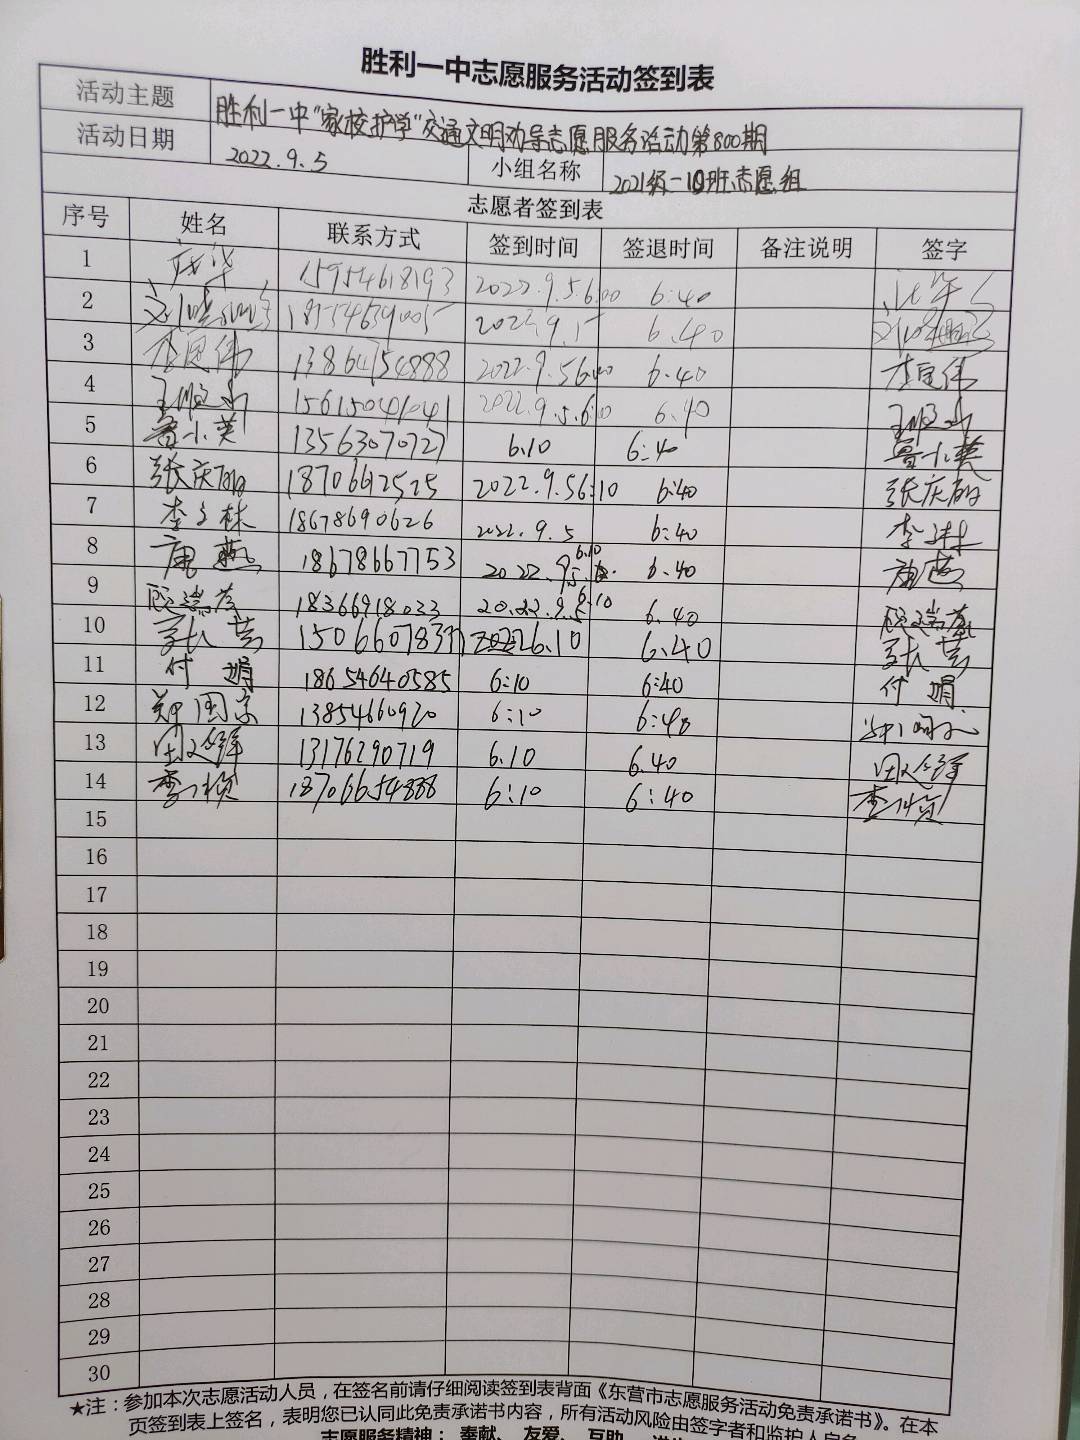 胜利一中志愿服务活动签到表
活动主题 胜利一中"家校护学"交通文明劝导志愿服务活动第800期
活动日期 2022.9.5 小组名称 2021级-10班志愿组
志愿者签到表
序号 姓名 联系方式 签到时间 签退时间 备注说明 签字
1 15954618193 2022.9.5.6:00 6:40
2 2022.9.5 6.40
3 13864754888 2022.9.5 6:40
4 15615041041 2022.9.5.6:10 6.40
5 鲁小英 13563070727 6.10 6:40 鲁小英
6 张庆丽 18706612525 2022.9.56:10 6:40 张庆丽
7 18678690626 2022.9.5 6:40
8 康燕 18678667753 2022.9.5 6.10 6.40 康燕
9 顾瑞芳 18366918033 2022.9.5 6.10 6.40 顾瑞芳
10 6.10 6.40
11 付娟 18654640585 6:10 6:40 付娟
12 郑国宗 13854660920 6:10 6:40
13 13176290719 6.10 6.40
14 18706654888 6:10 6:40
15
16
17
18
19
20
21
22
23
24
25
26
27
28
29
30
★注：参加本次志愿活动人员，在签名前请仔细阅读签到表背面《东营市志愿服务活动免责承诺书》。在本
页签到表上签名，表明您已认同此免责承诺书内容，所有活动风险由签字者和监护人自负
志愿服务精神：奉献、友爱、互助、